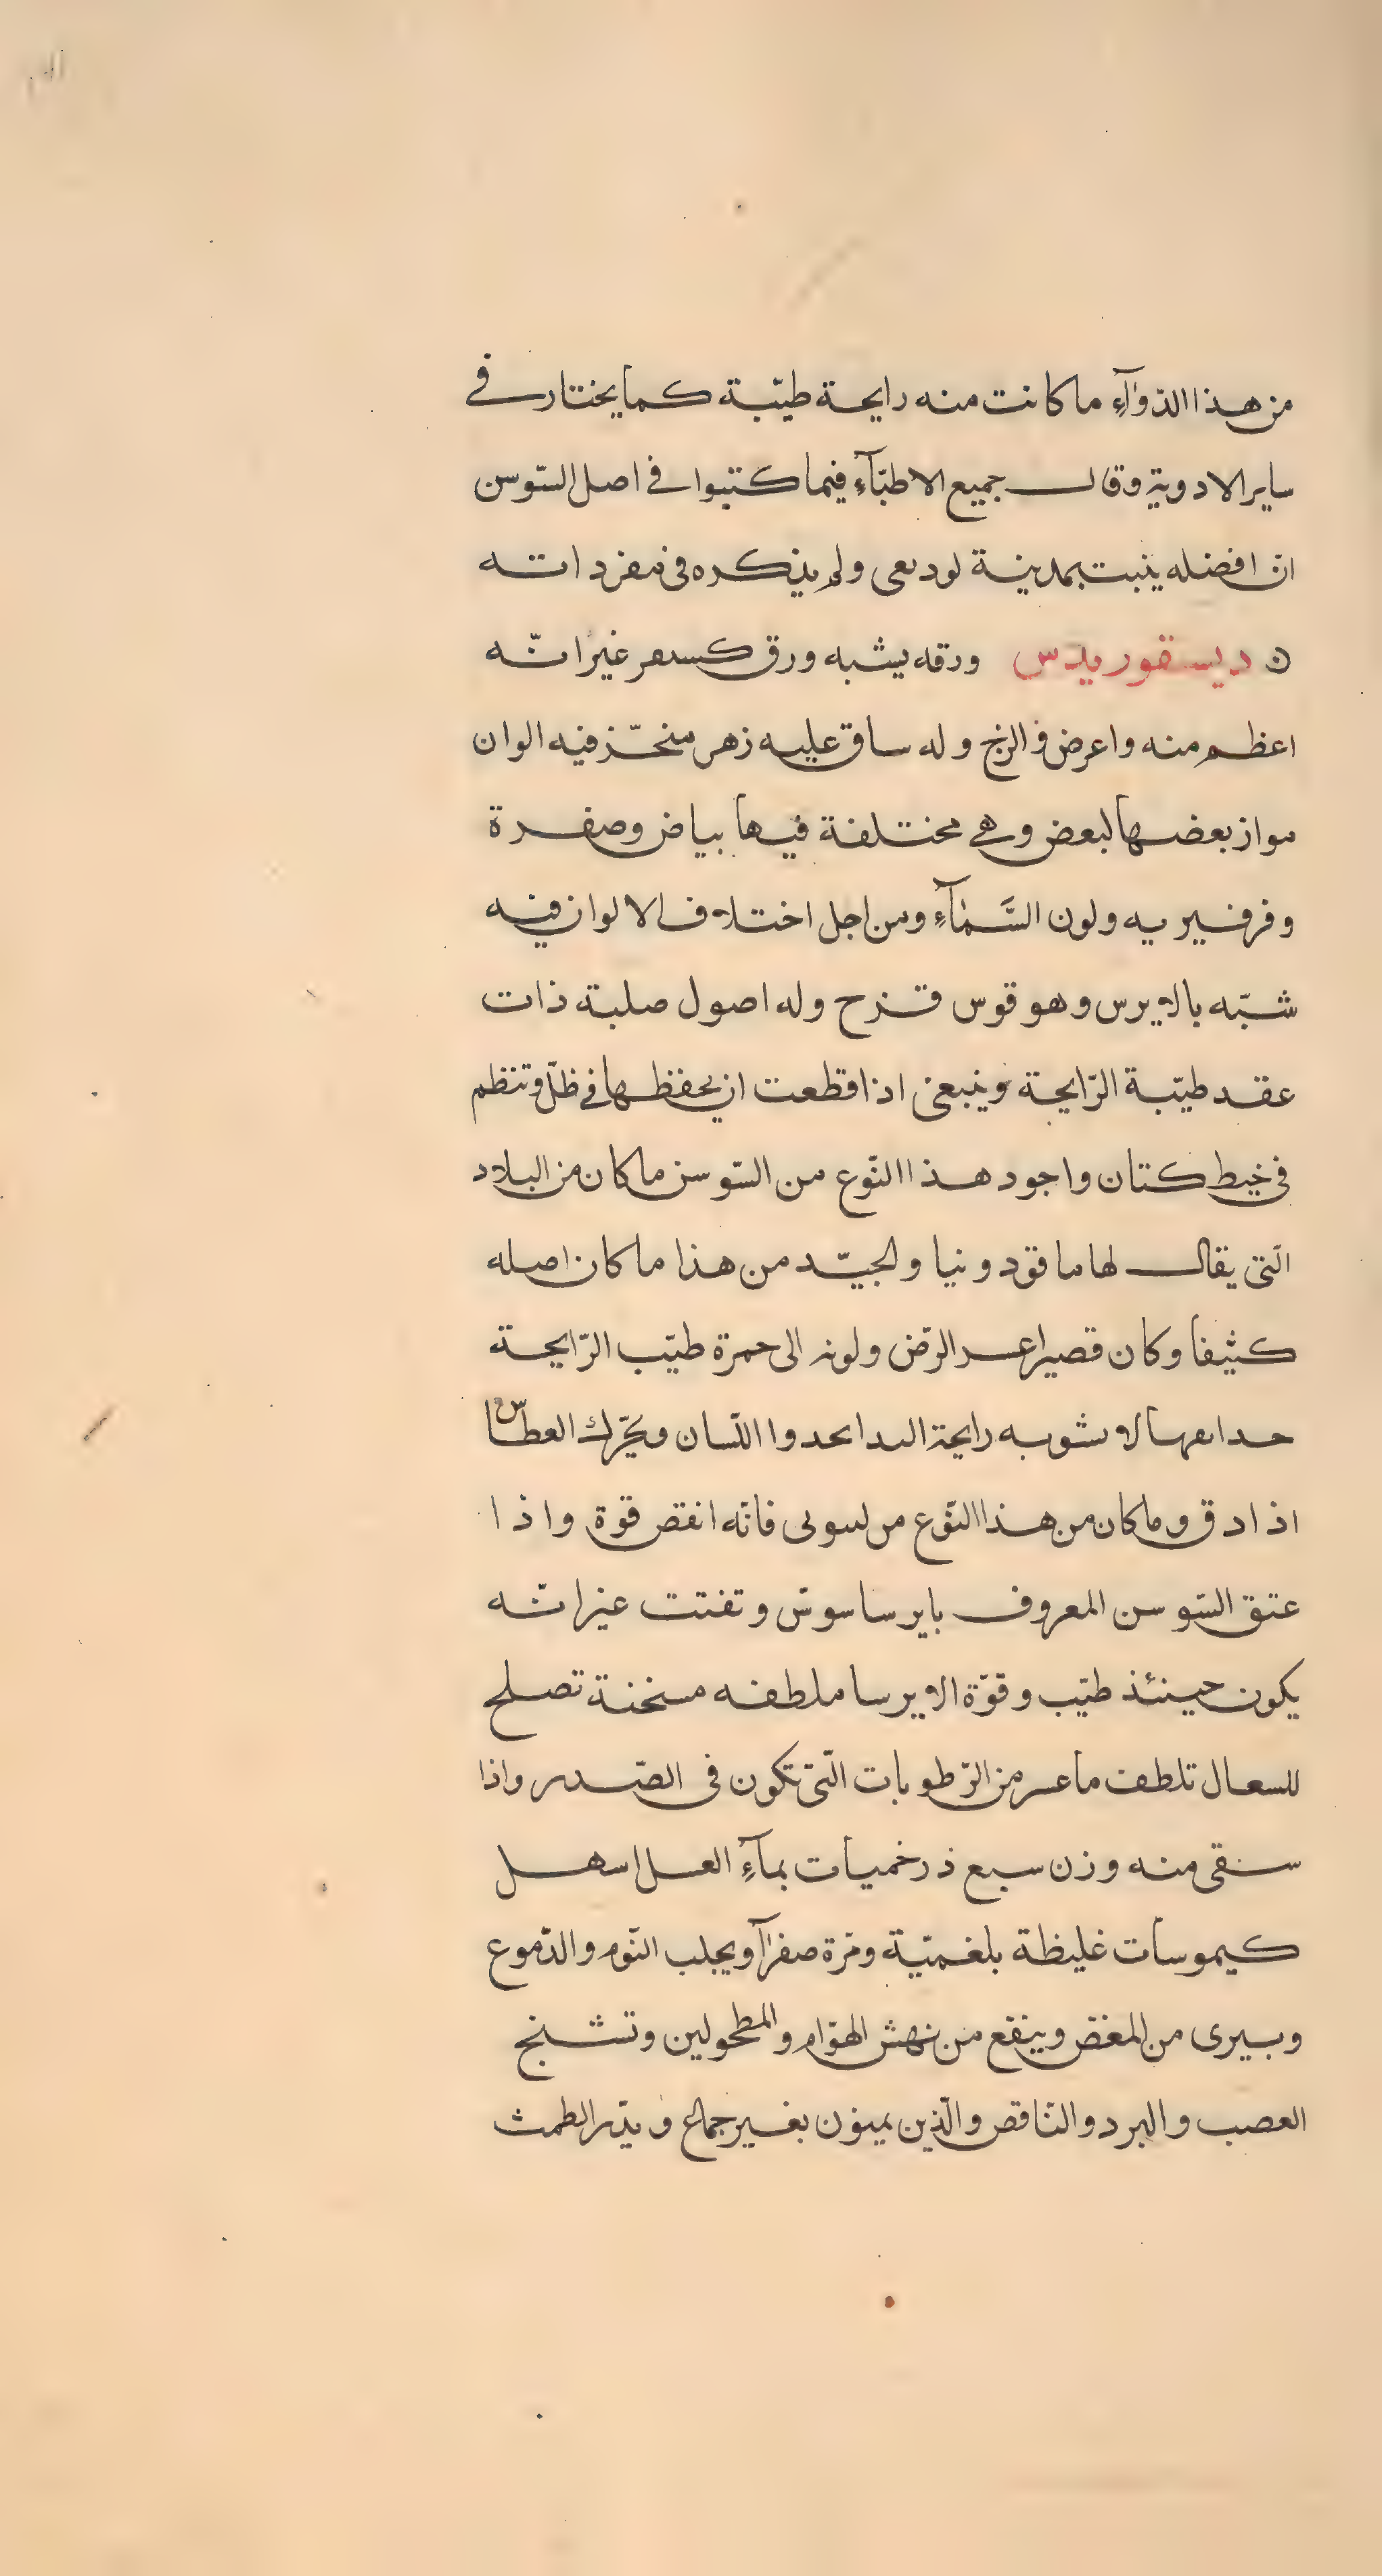 من هذا الدّوآءِ ما كانت منه رايحة طيّبة كما يختار فى
ساير الادوية وقال جميع الاطبّآءِ فيما كتبوا فى اصل السّوسن
ان افضله ينبت بمدينة لودىعى ولم يذكره فى مفرداته
ن ديسقوريدس ورقه يشبه ورق كسىعر غير انّه
اعظم منه واعرض وله ساق عليه زهر منحّز فيه الوان
مواز بعضها لبعض وهى مختلفة فيها بياض وصفرة
وفرفيريه ولون السَّمآءِ ومن اجل اختلاف الالوان فيه
شبّه بالايرس وهو قوس قزح وله اصول صلبة ذات
عقد طيّبة الرّايحة وينبغى اذا قطعت ان يحفظها فى ظلّ وتنظم
فى خيط كتان واجود هذا النّوع من السّوسن ما كان من البلاد
الّتى يقال لها ماقودونيا والجيّد من هذا ما كان اصله
كثيفا وكان قصيرا عسر الرّض ولونه الى حمرة طيّب الرّايحة
لا ىشوبه رايحة الىدا ىحدوا اللّسان ويحّرك العطاس
اذا دق وما كان من هذا النّوع من لىىوىى فانّه انقص قوّة واذا
عتق السّوسن المعروف بايرسا سوّس وتفتت غير انّه
يكون حينئذ طيّب وقوّة الايرسا ملطفه مسخنة تصلح
للسعال تلطف ما عسر من الرّطوبات الّتى تكون فى الصّدر واذا
سقى منه وزن سبع ذرخميات بمآءِ العسل اسهل
كيموسات غليظة بلغميّة ومّرة صفرآ ويجلب النّوم والدّموع
ويبرى من المغض وينفع من نهش الهوّام والمطحولين وتشنج
العصب والبرد والنّاقض والّذين يمنون بغير جماع ويدّر الطمث